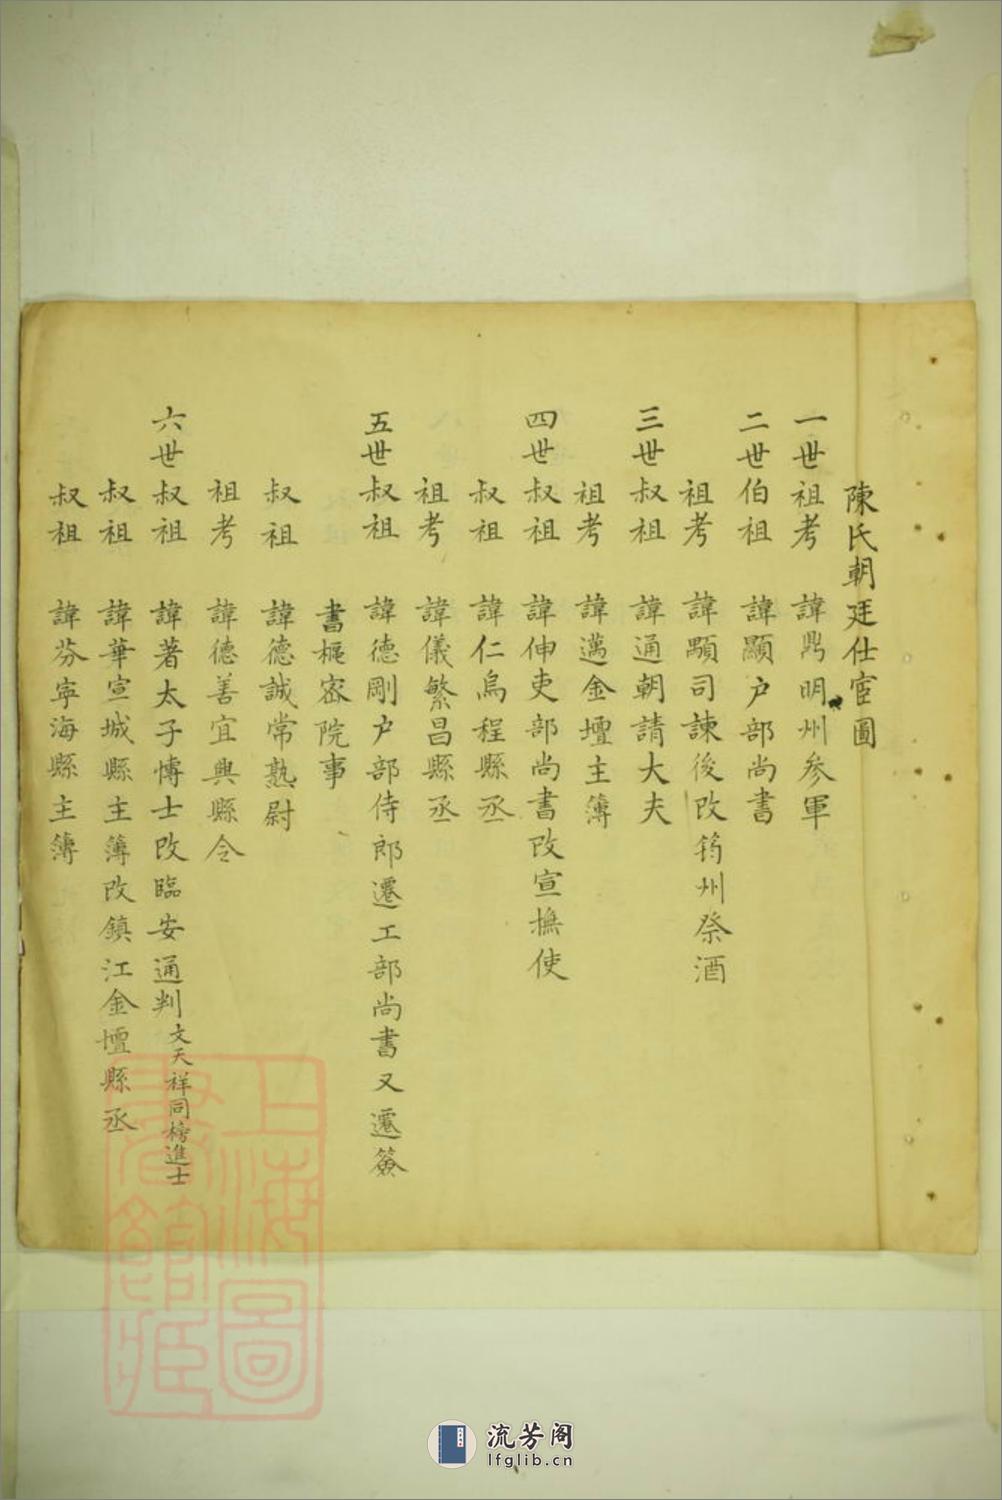 陳氏朝廷仕宦圖
一世祖考 諱鼎明州參軍
二世伯祖 諱顯户部尚書
祖考 諱顒司諫後改筠州祭酒
三世叔祖 諱通朝請大夫
祖考 諱邁金壇主簿
四世叔祖 諱伸吏部尚書改宣撫使
叔祖 諱仁烏程縣丞
祖考 諱儀繁昌縣丞
五世叔祖 諱德剛户部侍郎遷工部尚書又遷簽
書樞密院事
叔祖 諱德誠常熟尉
祖考 諱德善宜興縣令
六世叔祖 諱著太子博士改臨安通判文天祥同榜進士
叔祖 諱華宣城縣主簿改鎮江金壇縣丞
叔祖 諱芬寧海縣主簿
上海圖書館藏
流芳阁
lfglib.cn